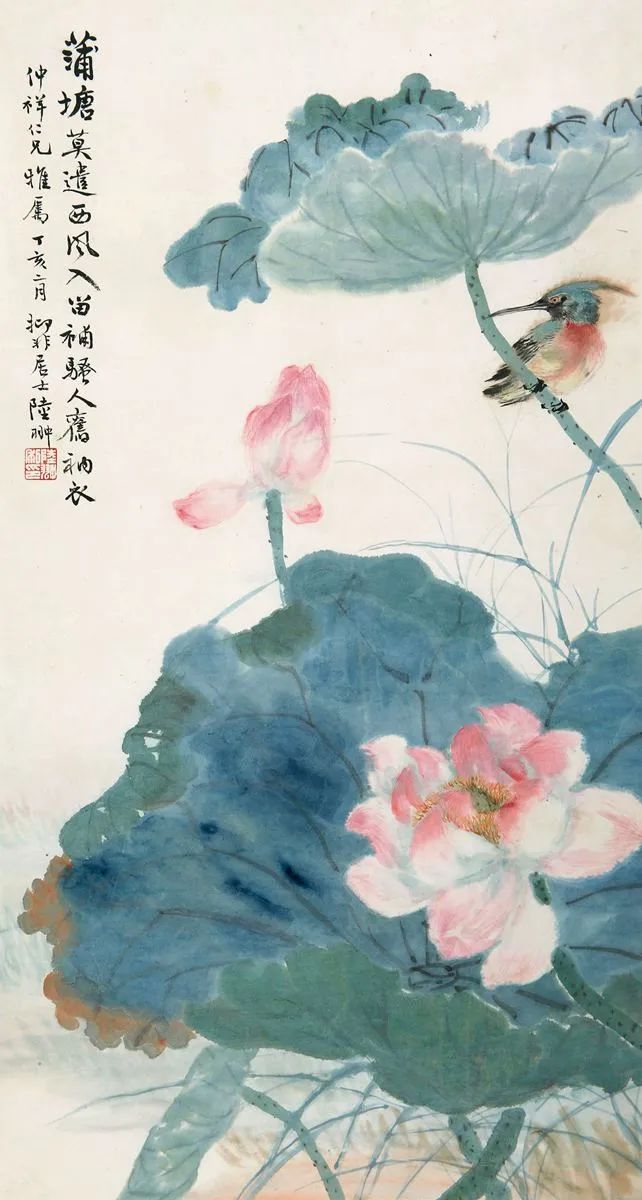 蒲塘莫遣西風入留補騷人舊衲衣
仲祥仁兄雅屬丁亥二月抑非居士陸翀